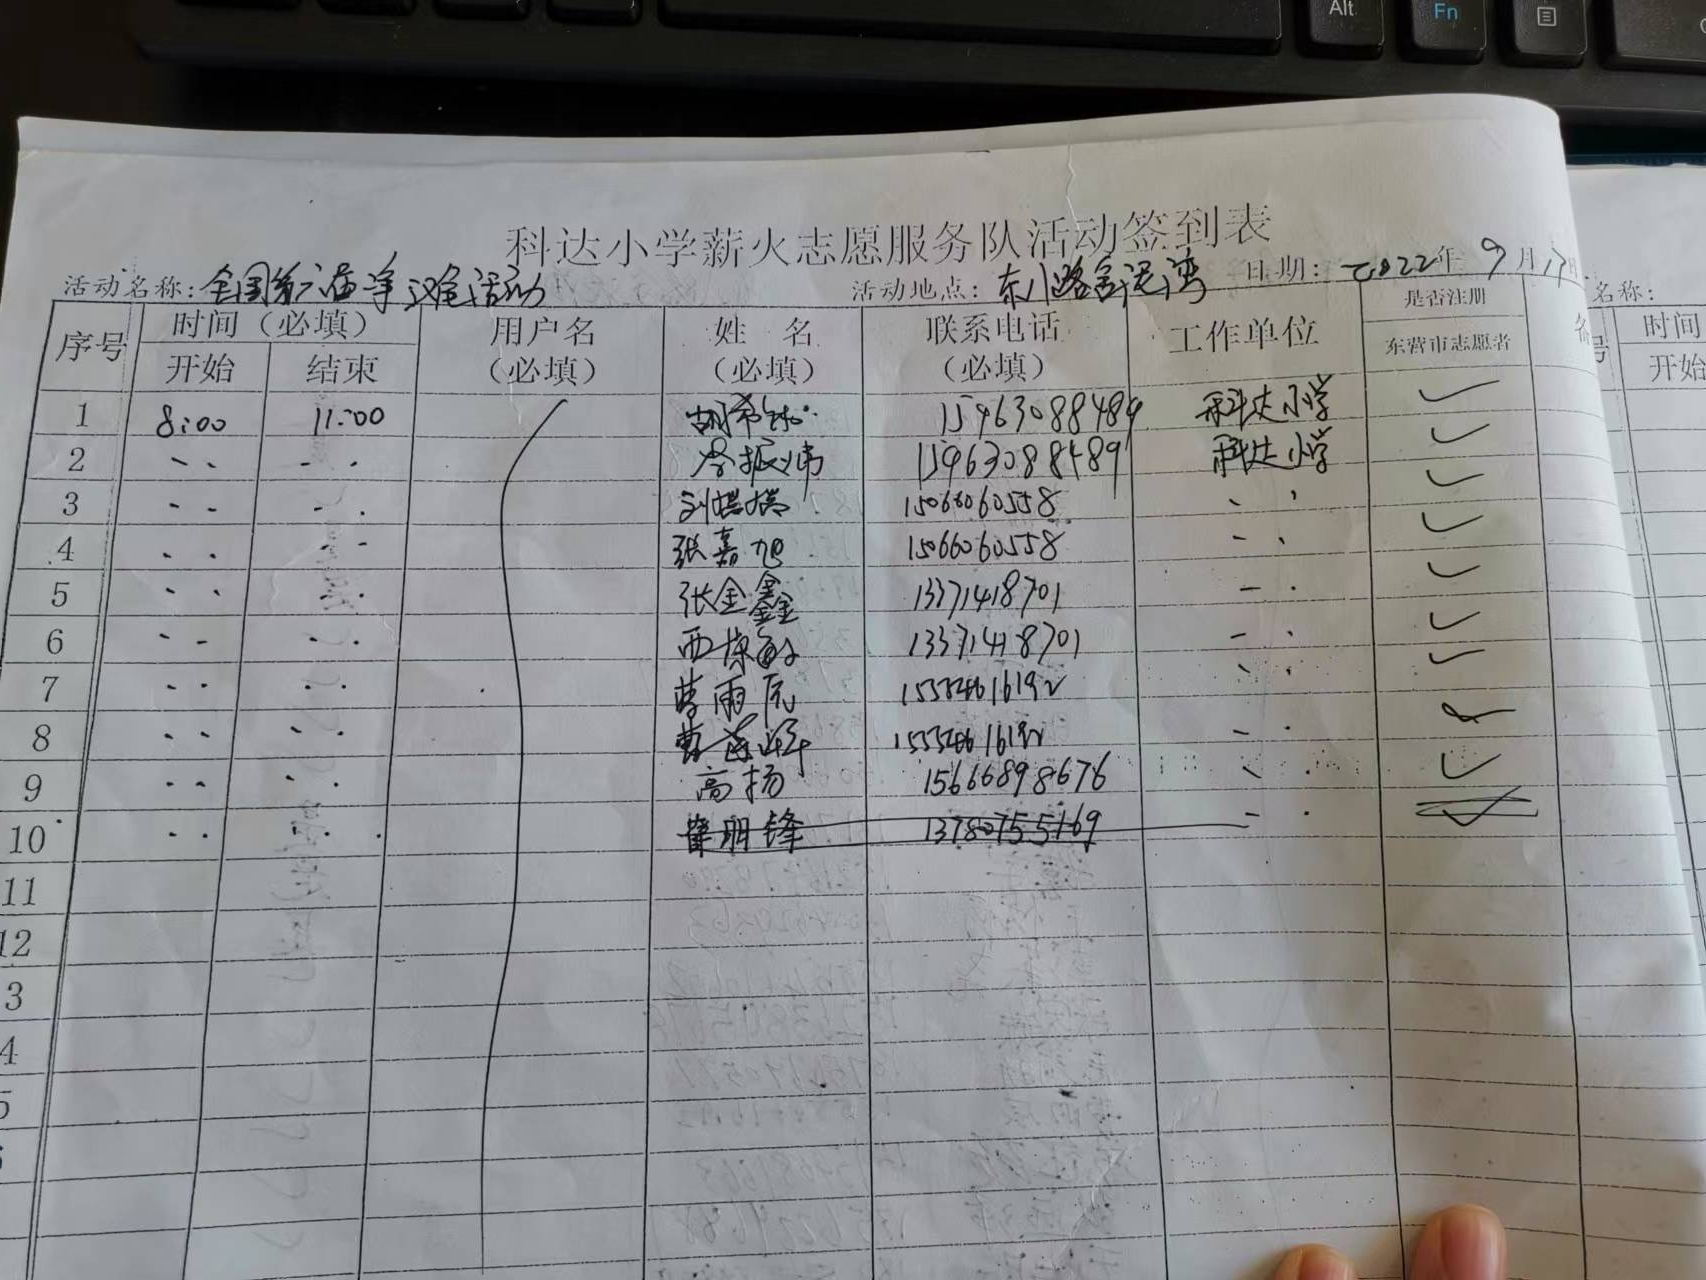 Alt Fn
科达小学薪火志愿服务队活动签到表
活动名称: 全国第六届净滩活动 活动地点: 东八路客运湾 日期: 2022年9月17日
序号 时间（必填） 用户名（必填） 姓名（必填） 联系电话（必填） 工作单位 是否注册东营市志愿者 备
开始 结束
1 8:00 11:00 15963088489 科达小学 ✓
2 李振伟 15963088489 科达小学 ✓
3 15066060558 ✓
4 张嘉旭 15066060558 ✓
5 张金鑫 13371418701 ✓
6 13371418701 ✓
7 ✓
8
9 高扬 15666898676 ✓
10 崔明锋 13780755169 ✓
11
12
3
4
5
名称:
号 时间
开始